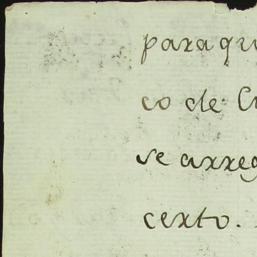 para qu
co de
se arreg
certo.